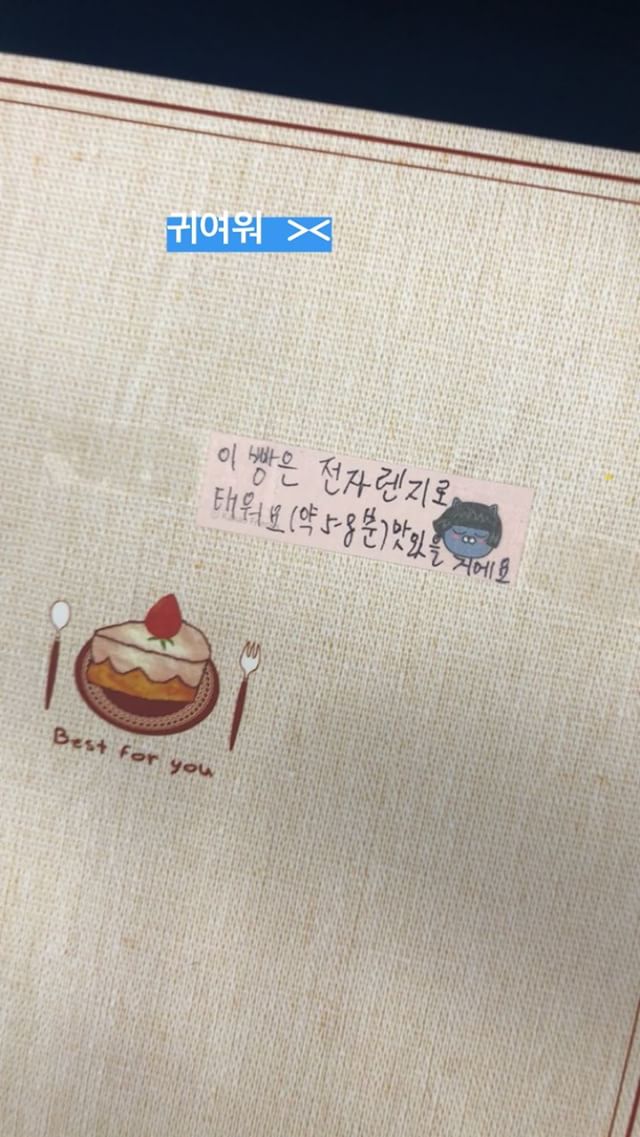 귀여워 ><
이 빵은 전자렌지로
태워요(약 5-8분)맛있을 지에요
Best for you